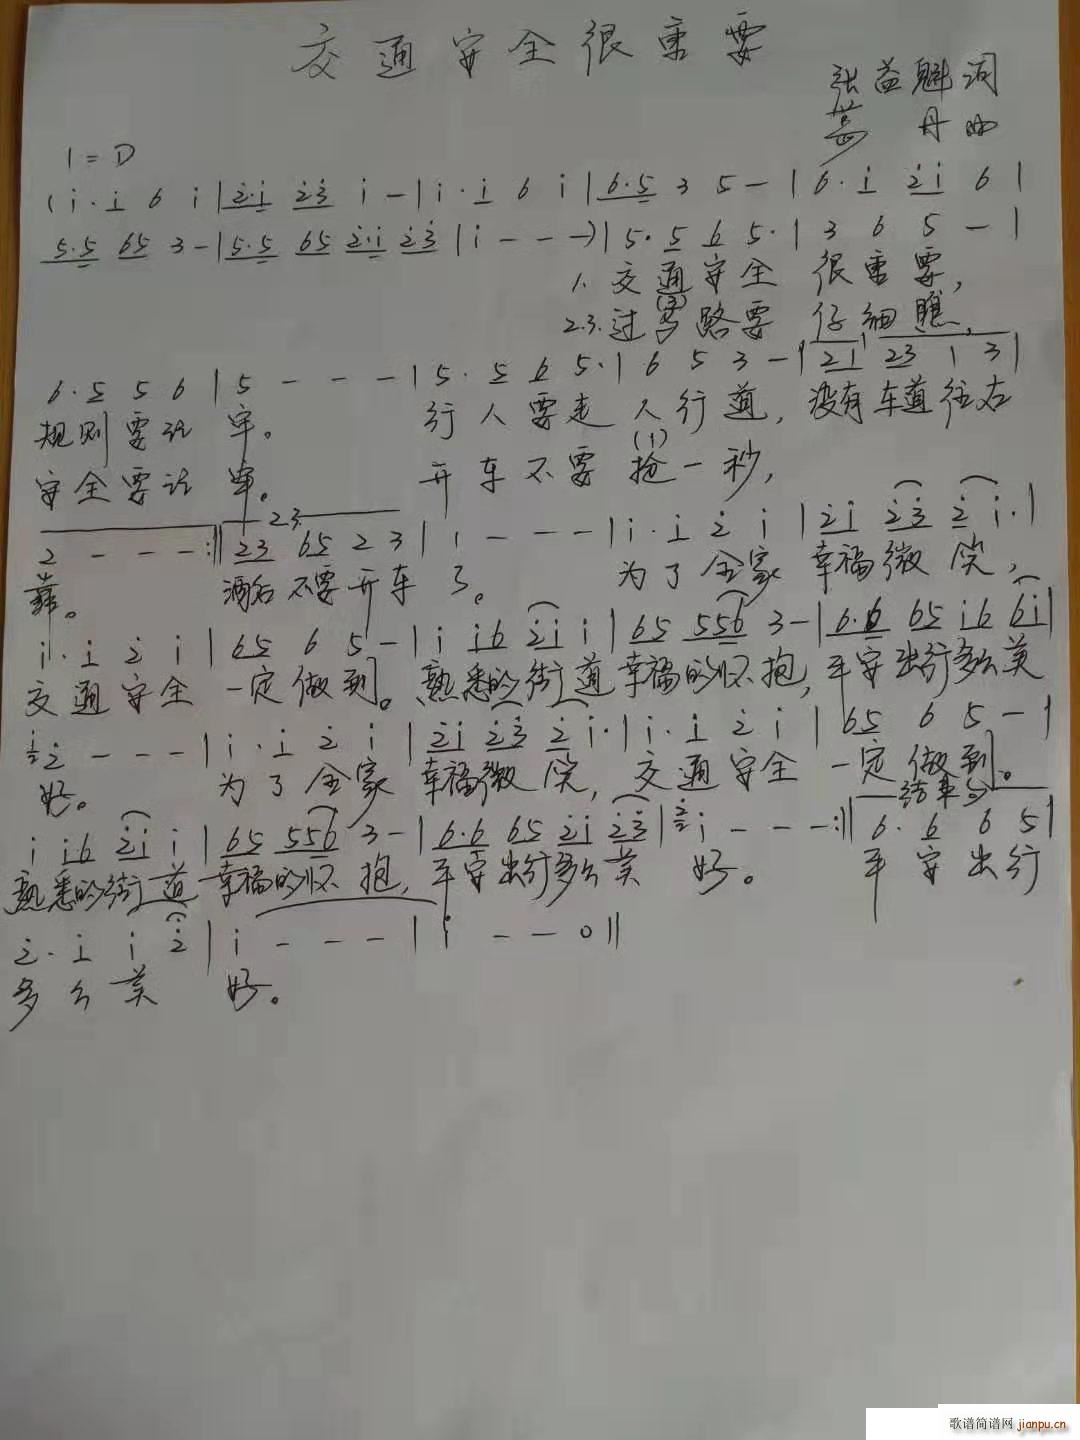 交通安全很重要
张益魁词
丹曲
1=D
(i·i 6 i|2·i 23 i -|i·i 6 i|6·5 3 5 -|6·i 2i 6|
5·5 65 3 -|5·5 65 2·i 23|i - - -)|5· 5 6 5·|3 6 5 -|
1.交通安全 很重要,
2.3.过马路要 仔细瞧,
6·5 5 6|5 - - -|5·5 6 5·|6 5 3 -|21 23 1 3|
规则要记牢。 行人要走 人行道,没有车道往右
(1)
安全要记牢。 开车不要抢一秒,
2 - - -:‖ 2.3. 23 65 2 3|1 - - -|i·i 2 i|2i 23 2 i·|
靠。 酒后不要开车了。 为了全家 幸福微笑,
i·i 2 i|65 6 5 -|i i6 2i i|65 556 3 -|6·6 65 i6 6i|
交通安全 一定做到。熟悉的街道幸福的怀抱,平安出行多么美
2 - - -|i·i 2 i|2i 23 2 i·|i·i 2 i|65 6 5 -|
好。 为了全家 幸福微笑, 交通安全 一定做到。
结束句
i i6 2i i|65 556 3 -|6·6 65 2i 23|i - - -:‖6· 6 6 5|
熟悉的街道幸福的怀抱,平安出行多么美 好。 平安出行
2·i i 2|i - - -|i - - 0‖
多么美 好。
歌谱简谱网 jianpu.cn